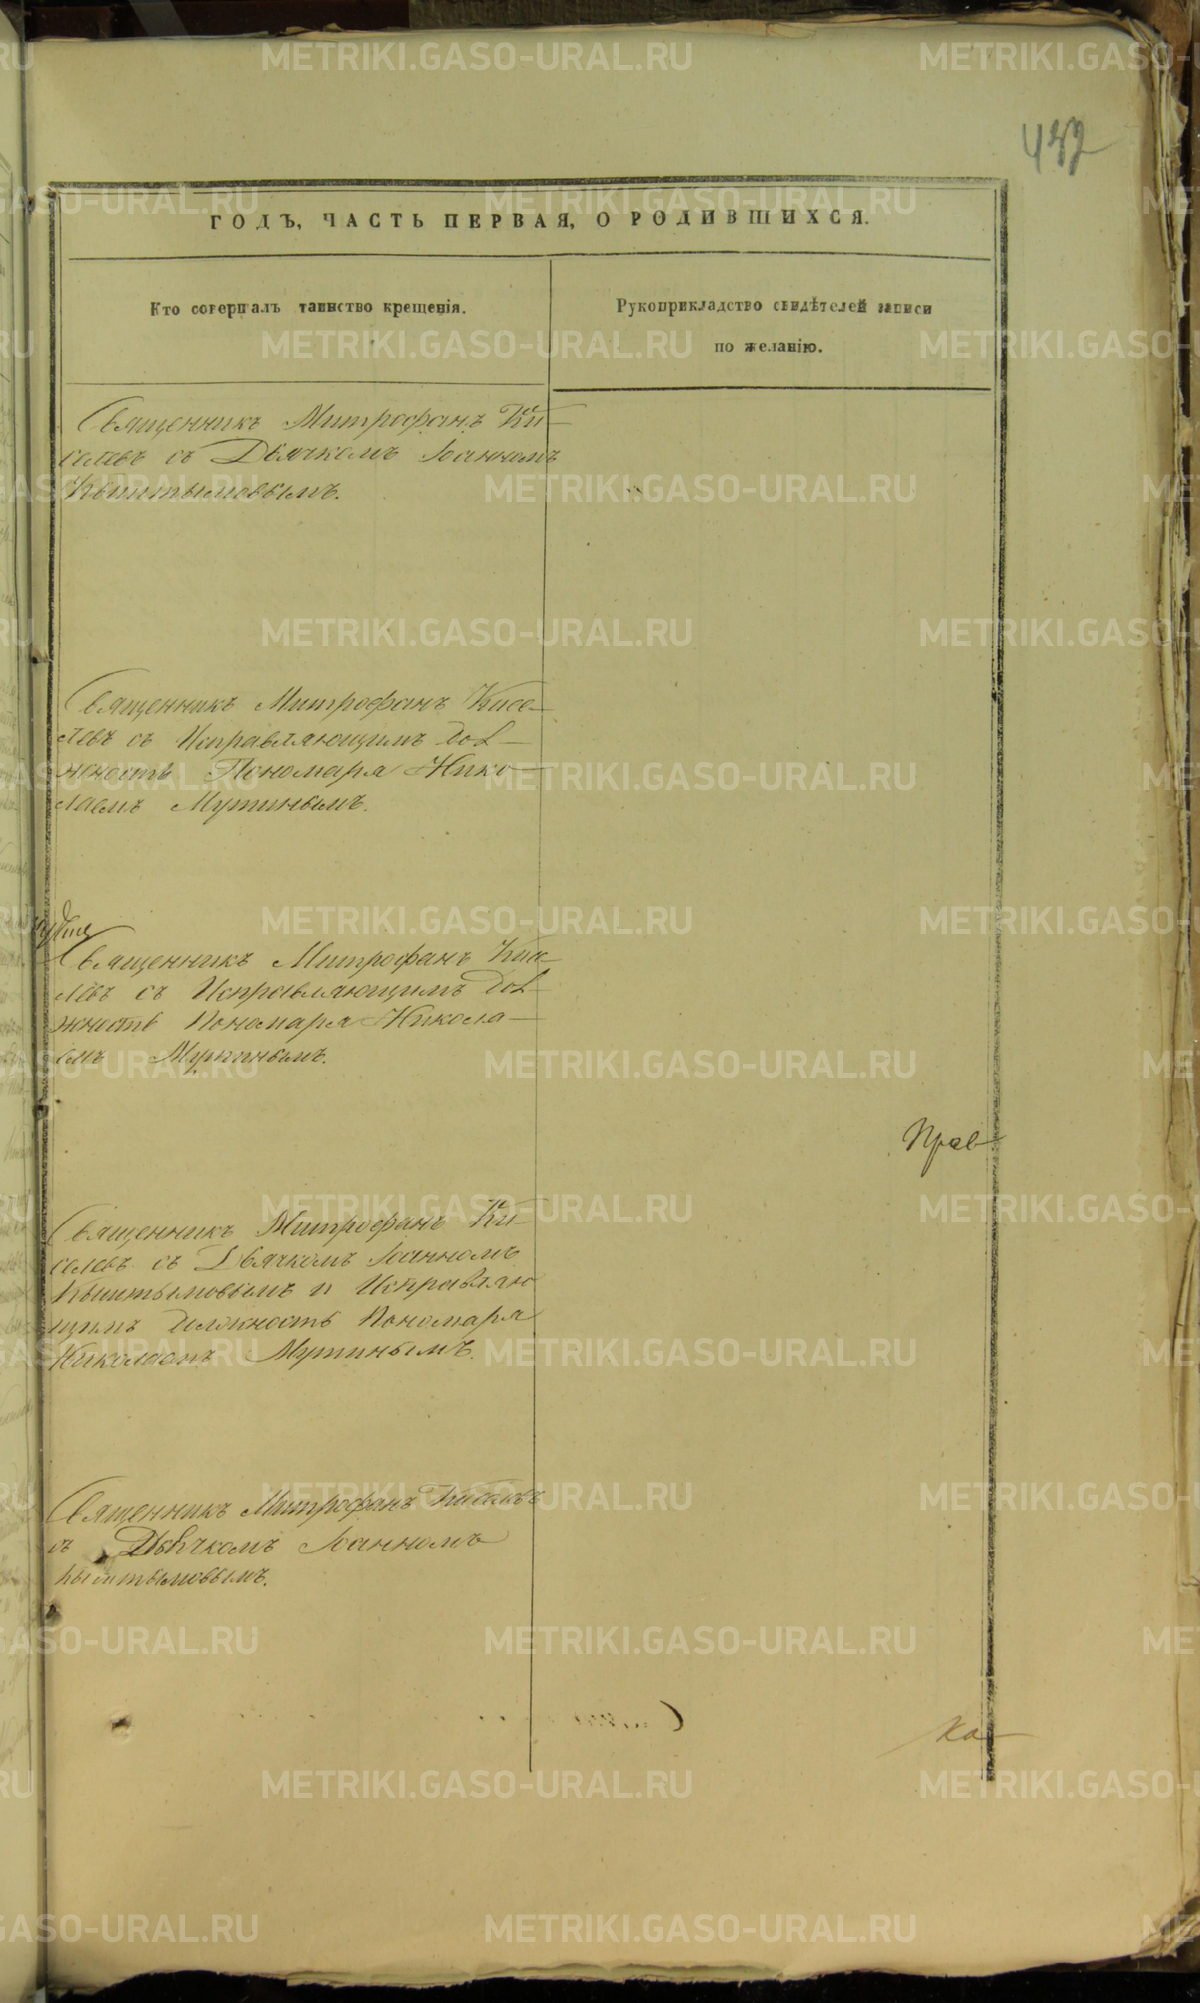 432
ГОДЪ, ЧАСТЬ ПЕРВАЯ, О РОДИВШИХСЯ.
Кто совершалъ таинство крещенія.
Рукоприкладство свидѣтелей записи
по желанію.
Священникъ Митрофанъ Ки-
селевъ съ Дьячкомъ Іоанномъ
Кыштымовымъ.
Священникъ Митрофанъ Кисе-
левъ съ Исправляющимъ Дол-
жность Пономаря Нико-
лаемъ Мутинымъ.
Священникъ Митрофанъ Кисе-
левъ съ Исправляющимъ Дол-
жность Пономаря Никола-
емъ Мутинымъ.
Прав
Священникъ Митрофанъ Ки-
селевъ съ Дьячкомъ Іоанномъ
Кыштымовымъ и Исправляю
щимъ Должность Пономаря
Николаемъ Мутинымъ.
Священникъ Митрофанъ Киселевъ
съ Дьячкомъ Іоанномъ
Кыштымовымъ.
Ка
METRIKI.GASO-URAL.RU